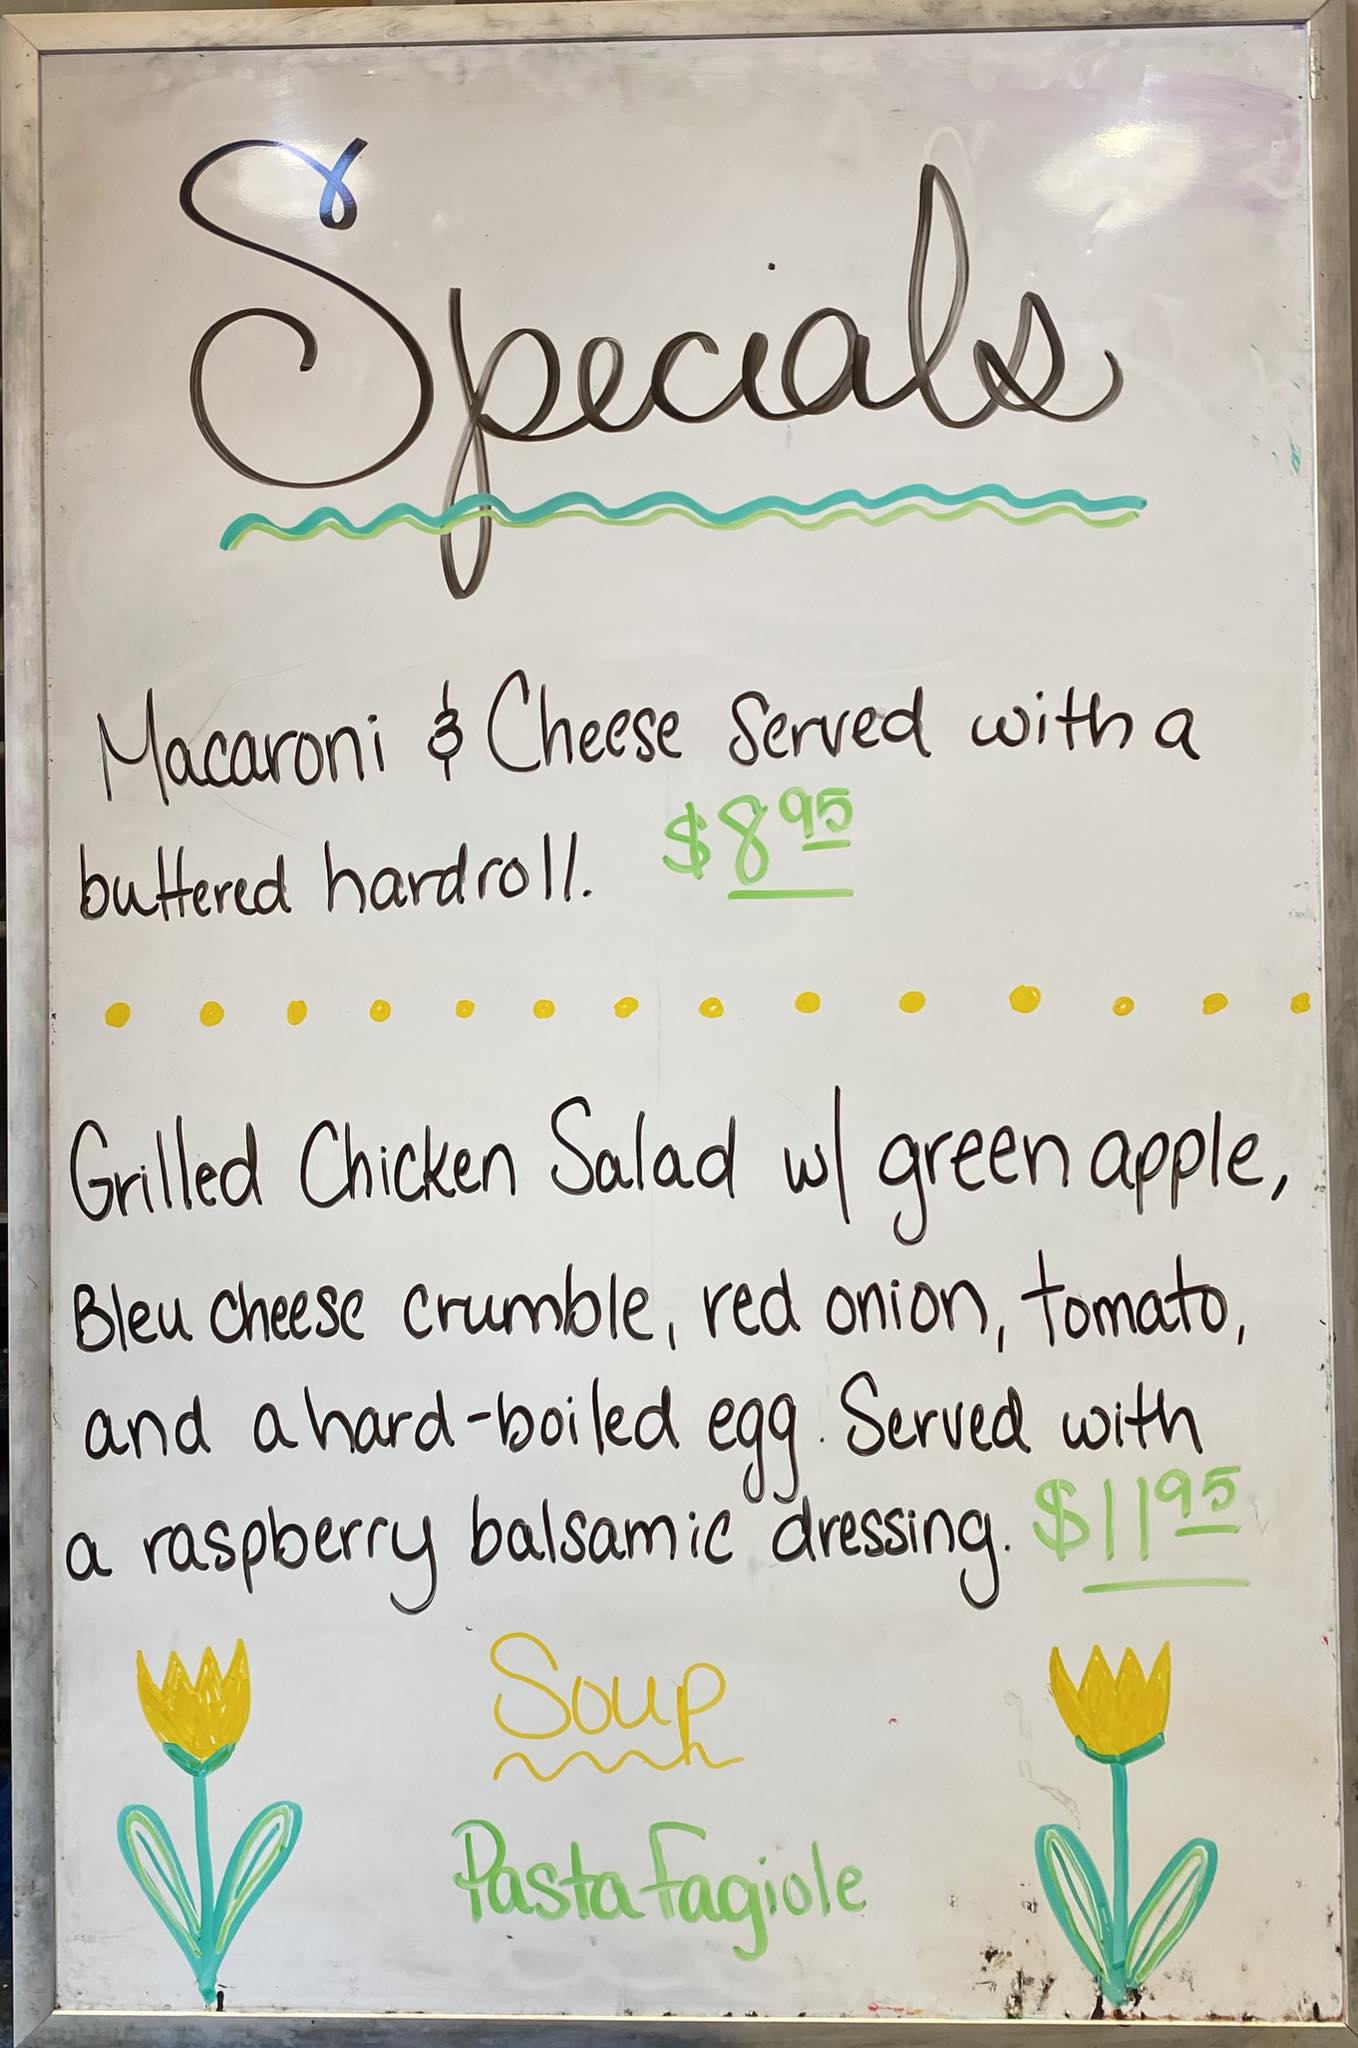 Specials
Macaroni & Cheese Served with a
buttered hardroll. $8.95
Grilled Chicken Salad w/ green apple,
Bleu cheese crumble, red onion, tomato,
and a hard-boiled egg. Served with
a raspberry balsamic dressing. $11.95
Soup
Pasta Fagiole